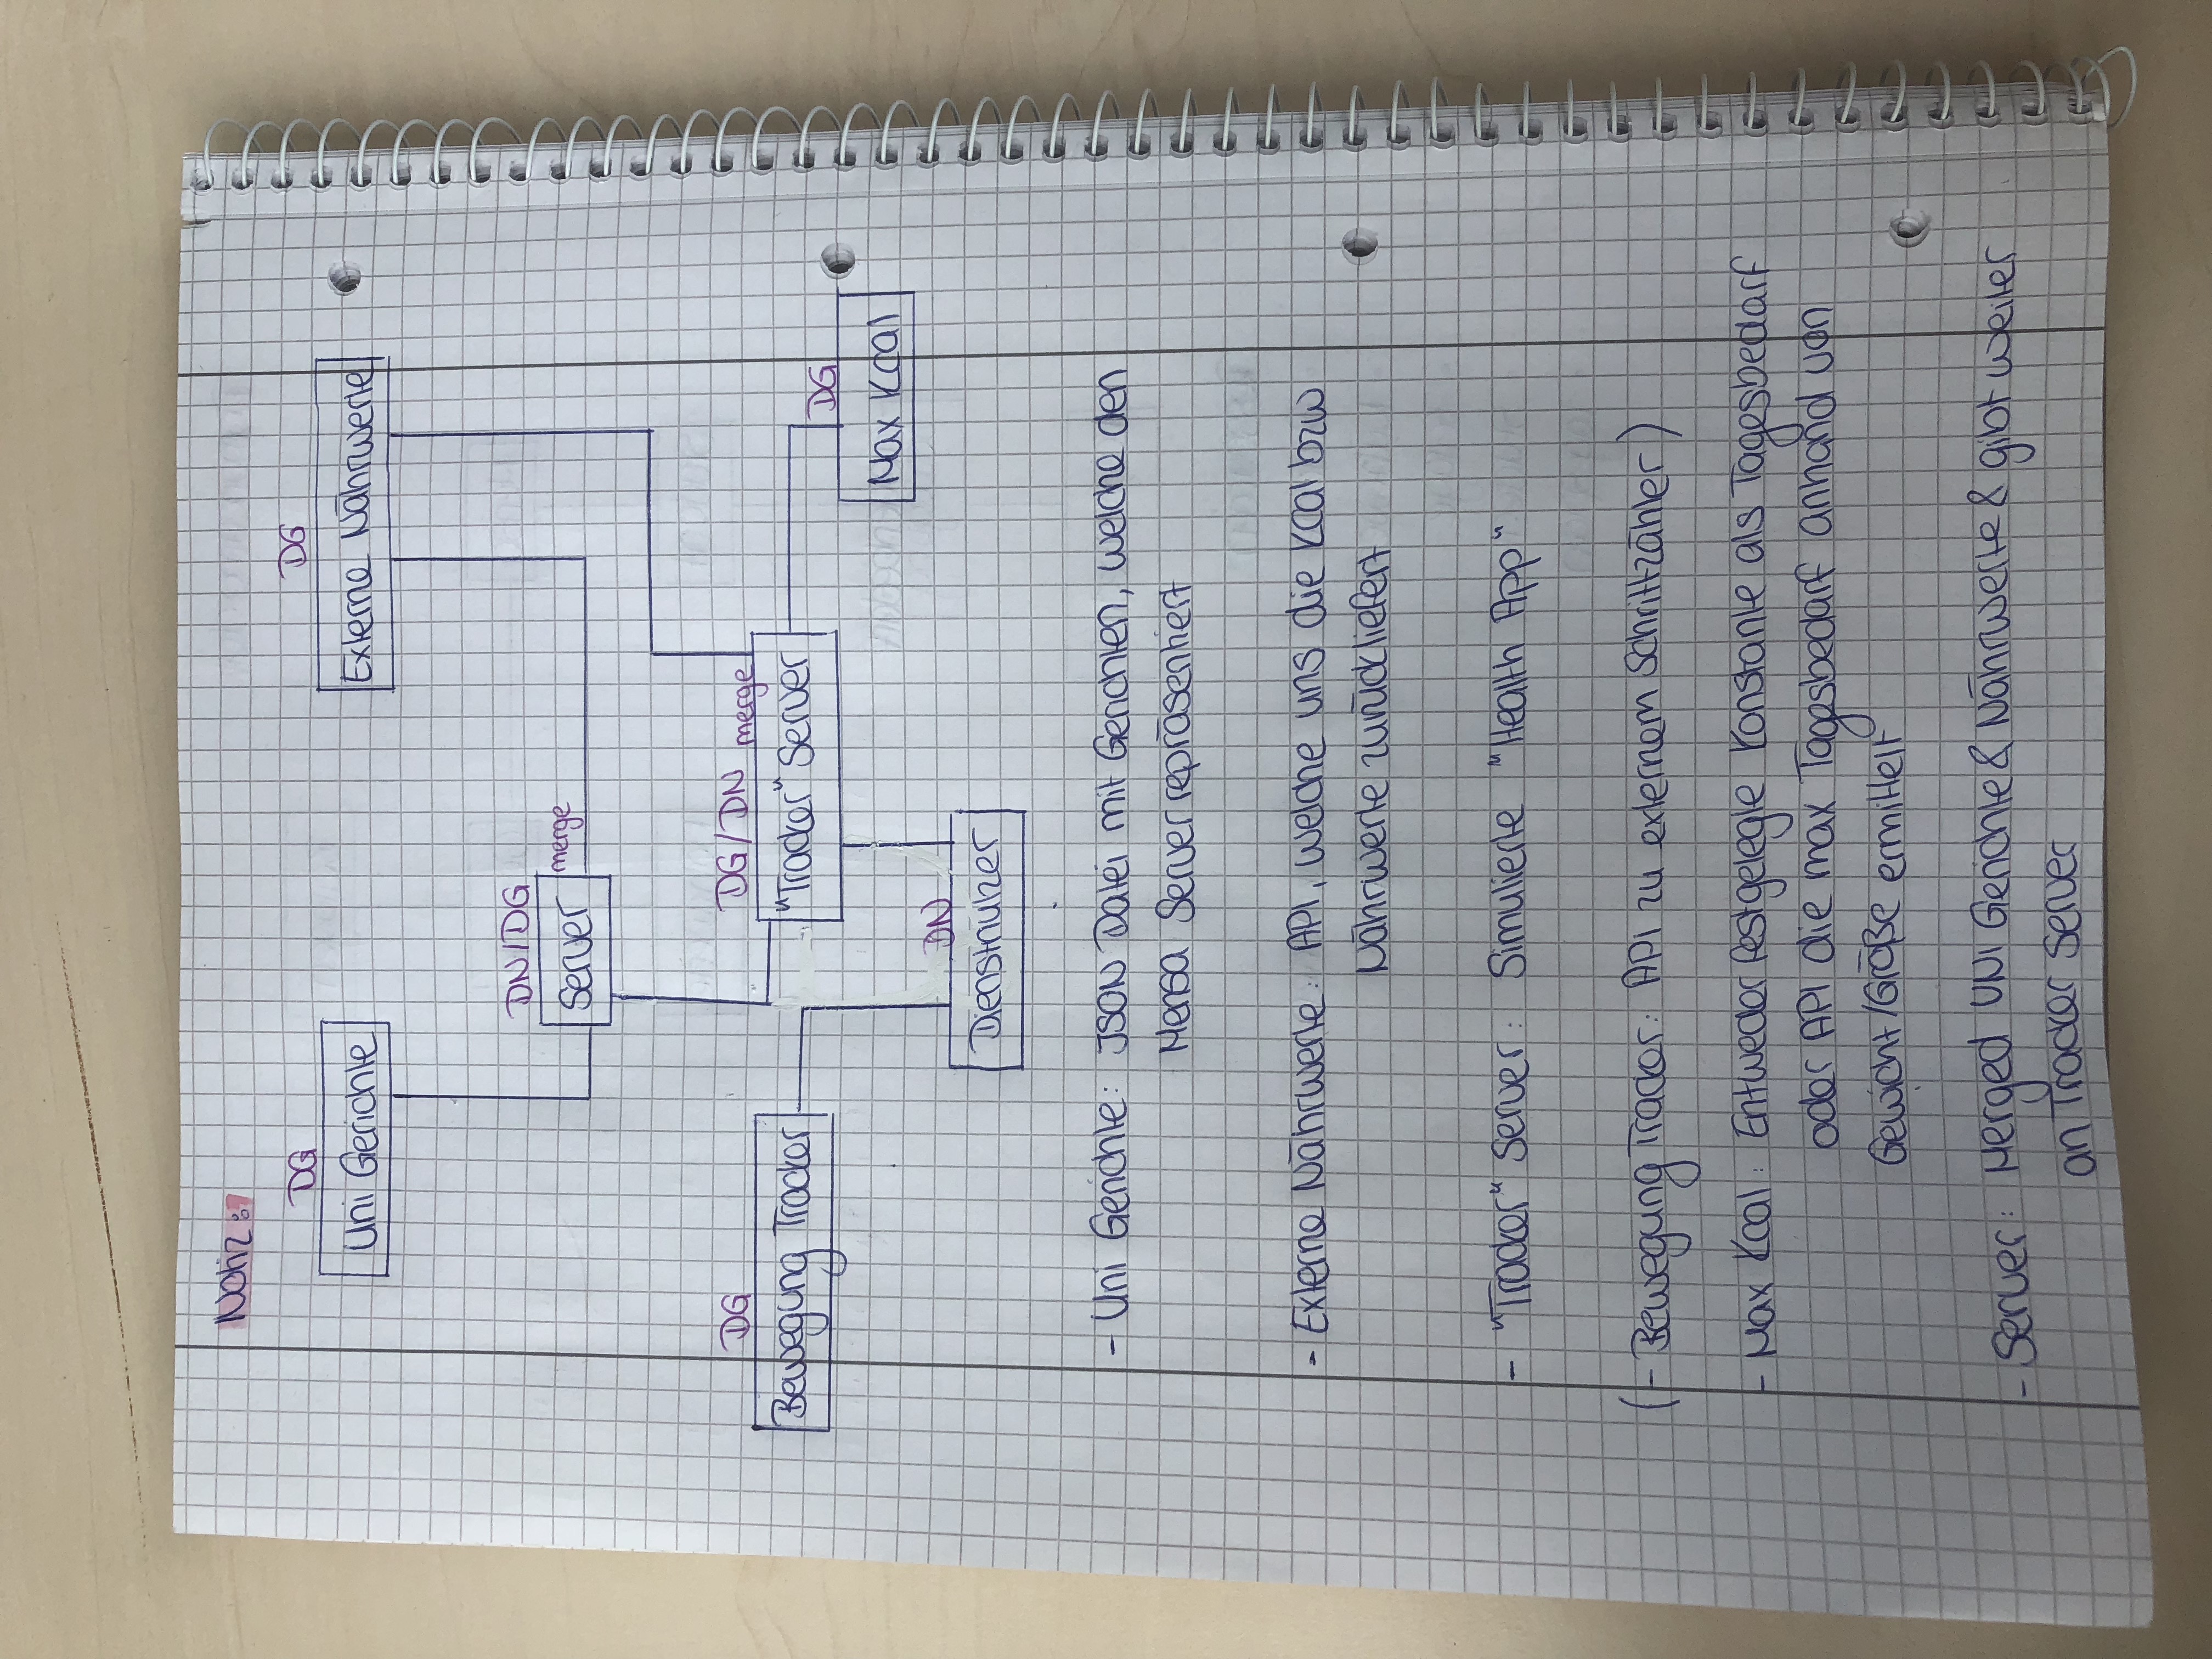 Notiz:
DG
DG
Uni Gerichte
Externe Nährwerte
DN/DG
Server
merge
DG
DG/DN
merge
Bewegung Tracker
"Tracker" Server
DG
Max Kcal
DN
Dienstnutzer
- Uni Gerichte: JSON Datei mit Gerichten, welche den
Mensa Server repräsentiert
- Externe Nährwerte: API, welche uns die Kcal bzw
Nährwerte zurückliefert
- "Tracker" Server: Simulierte "Health App"
(- Bewegung Tracker: API zu externem Schrittzähler)
- Max Kcal: Entweder festgelegte Konstante als Tagesbedarf
oder API die max Tagesbedarf anhand von
Gewicht/Größe ermittelt
- Server: Merged UNI Gerichte & Nährwerte & gibt weiter
an Tracker Server